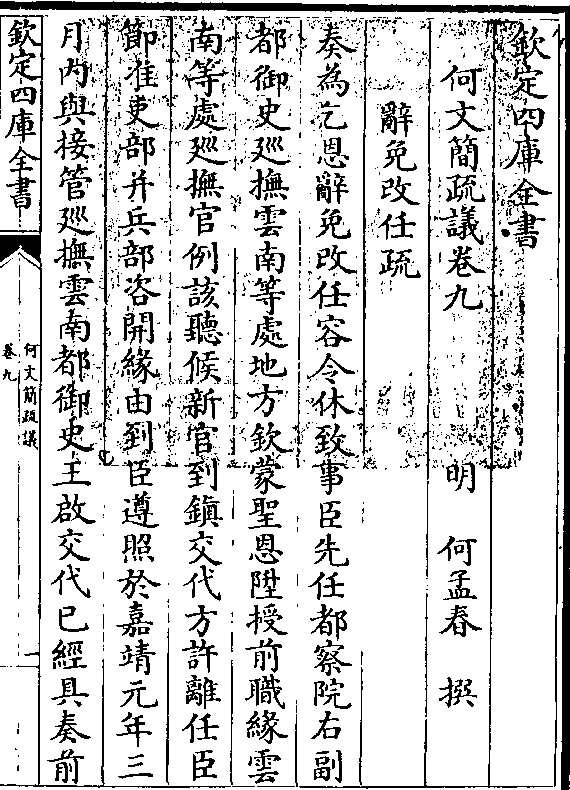 欽定四庫全書
何文簡疏議卷九
明 何孟春 撰
辭免改任疏
奏為乞恩辭免改任容令休致事臣先任都察院右副
都御史廵撫雲南等處地方欽蒙聖恩陞授前職緣雲
南等處廵撫官例該聽候新官到鎮交代方許離任臣
節准吏部并兵部咨開緣由到臣遵照於嘉靖元年三
月内與接管廵撫雲南都御史王啟交代已經具奏前
欽定四庫全書
何文簡疏議
卷九
一